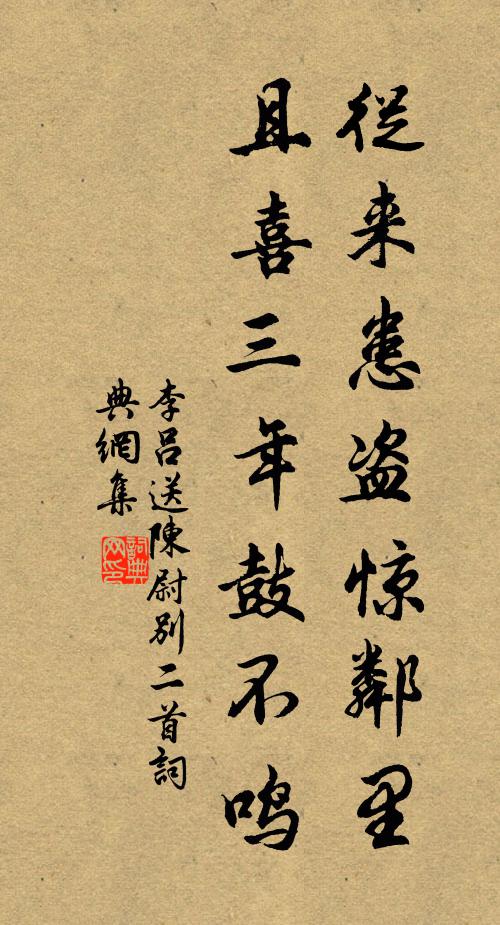 從来患盗惊鄰里
且喜三年鼓不鸣
李吕送陳尉别二首詞
典網集
詞典
网印